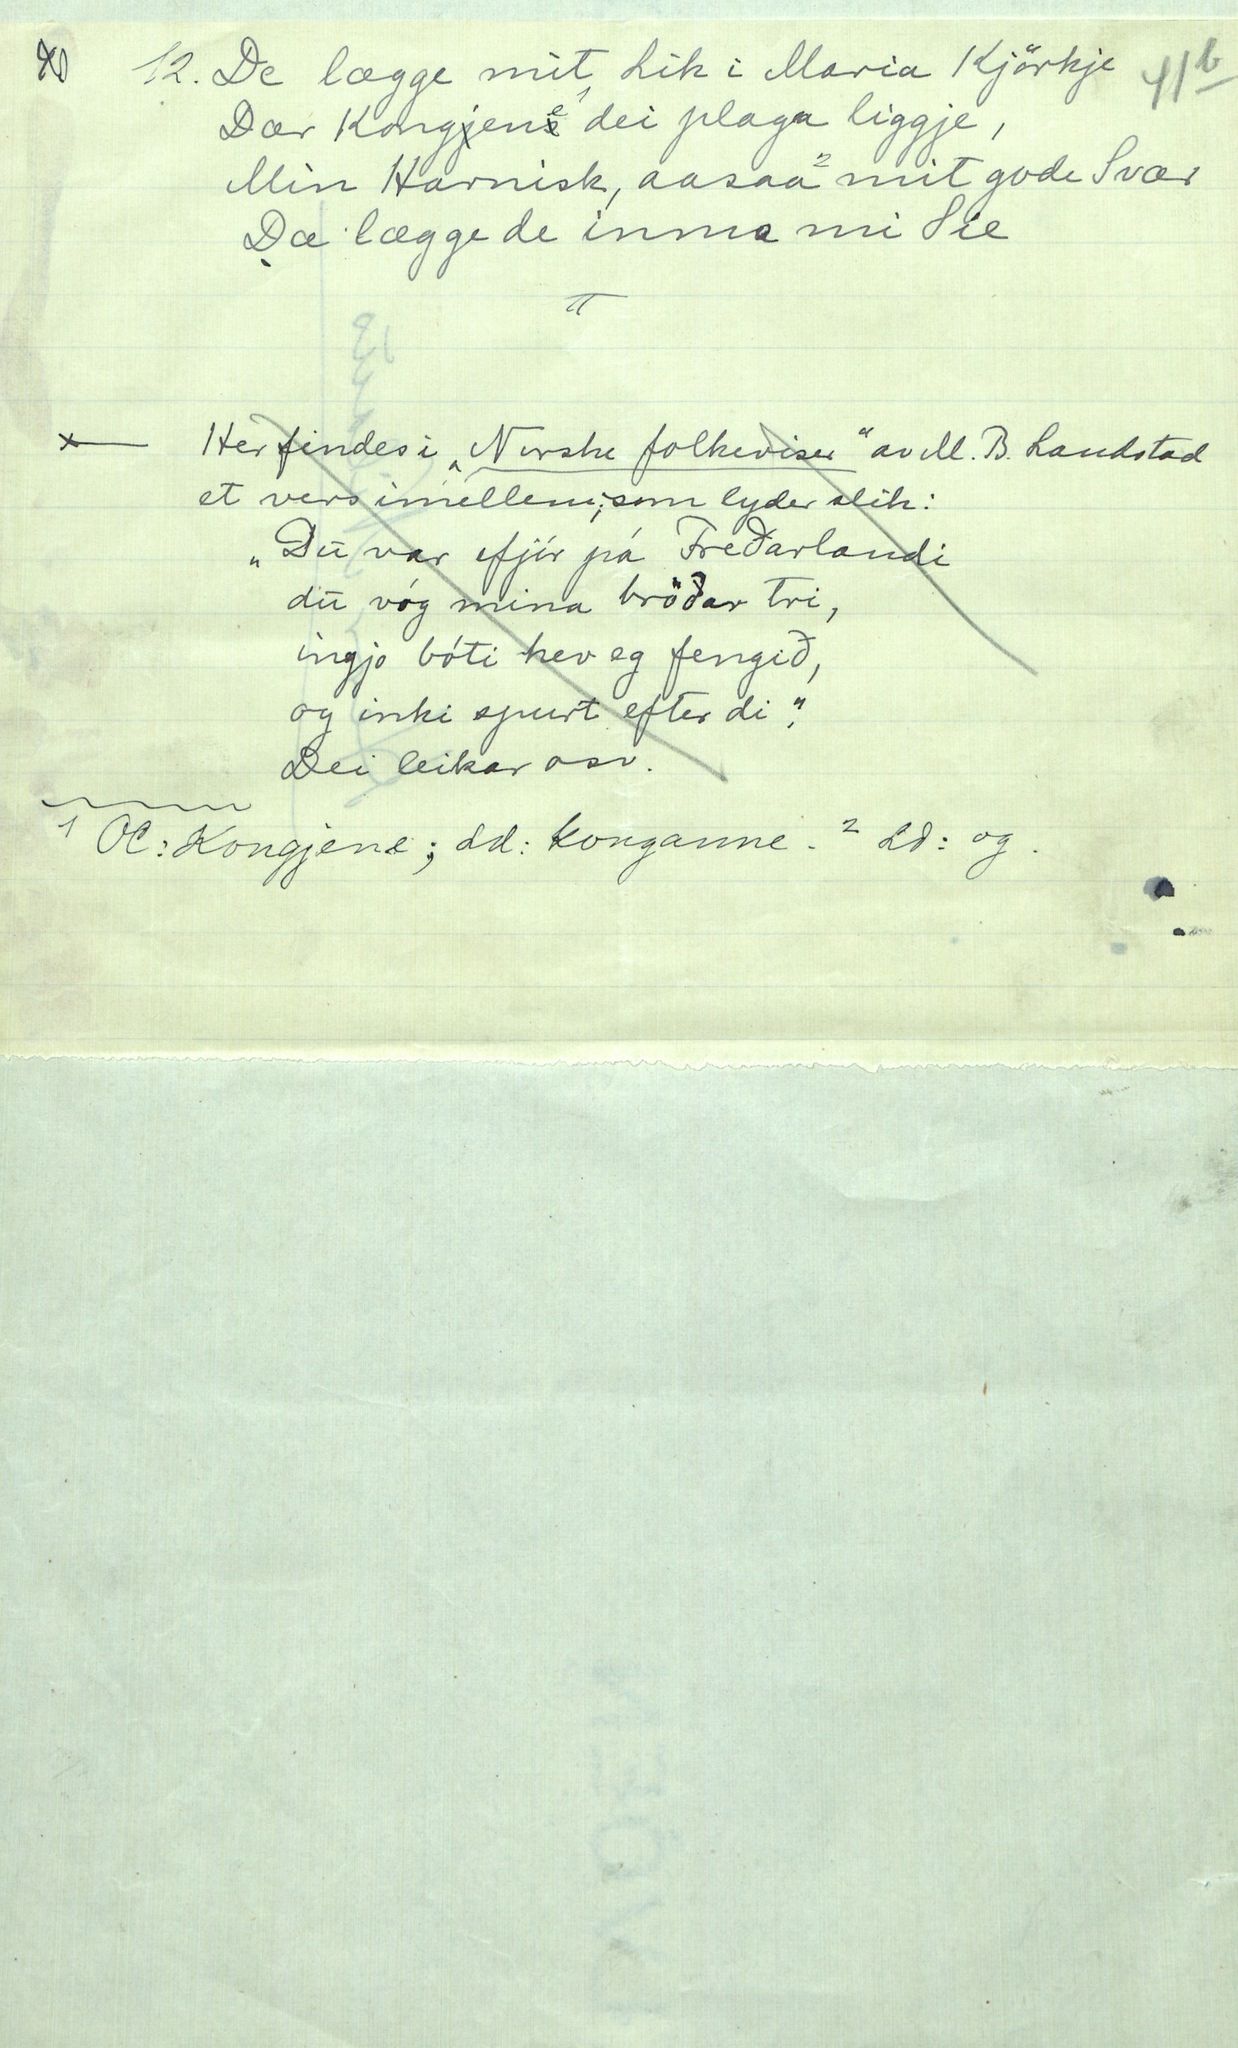 41b
12. De lægge mit Lik i Maria Kjörkje
Dær Kongjene¹ dei plaga liggje,
Min Harnisk, aasaa² mit gode Svær
Dæ lægge de inma mi Sie
Her findes i „Norske folkeviser“ av M. B. Landstad
et vers imellem, som lyder slik:
„Du var efjir på Freðarlandi
du vóg mina bröðar tri,
ingjo bóti hev eg fengið,
og inki spurt efter di“.
Dei leikar osv.
¹ OC: Kongjene; Ld: konganne. ² Ld: og.